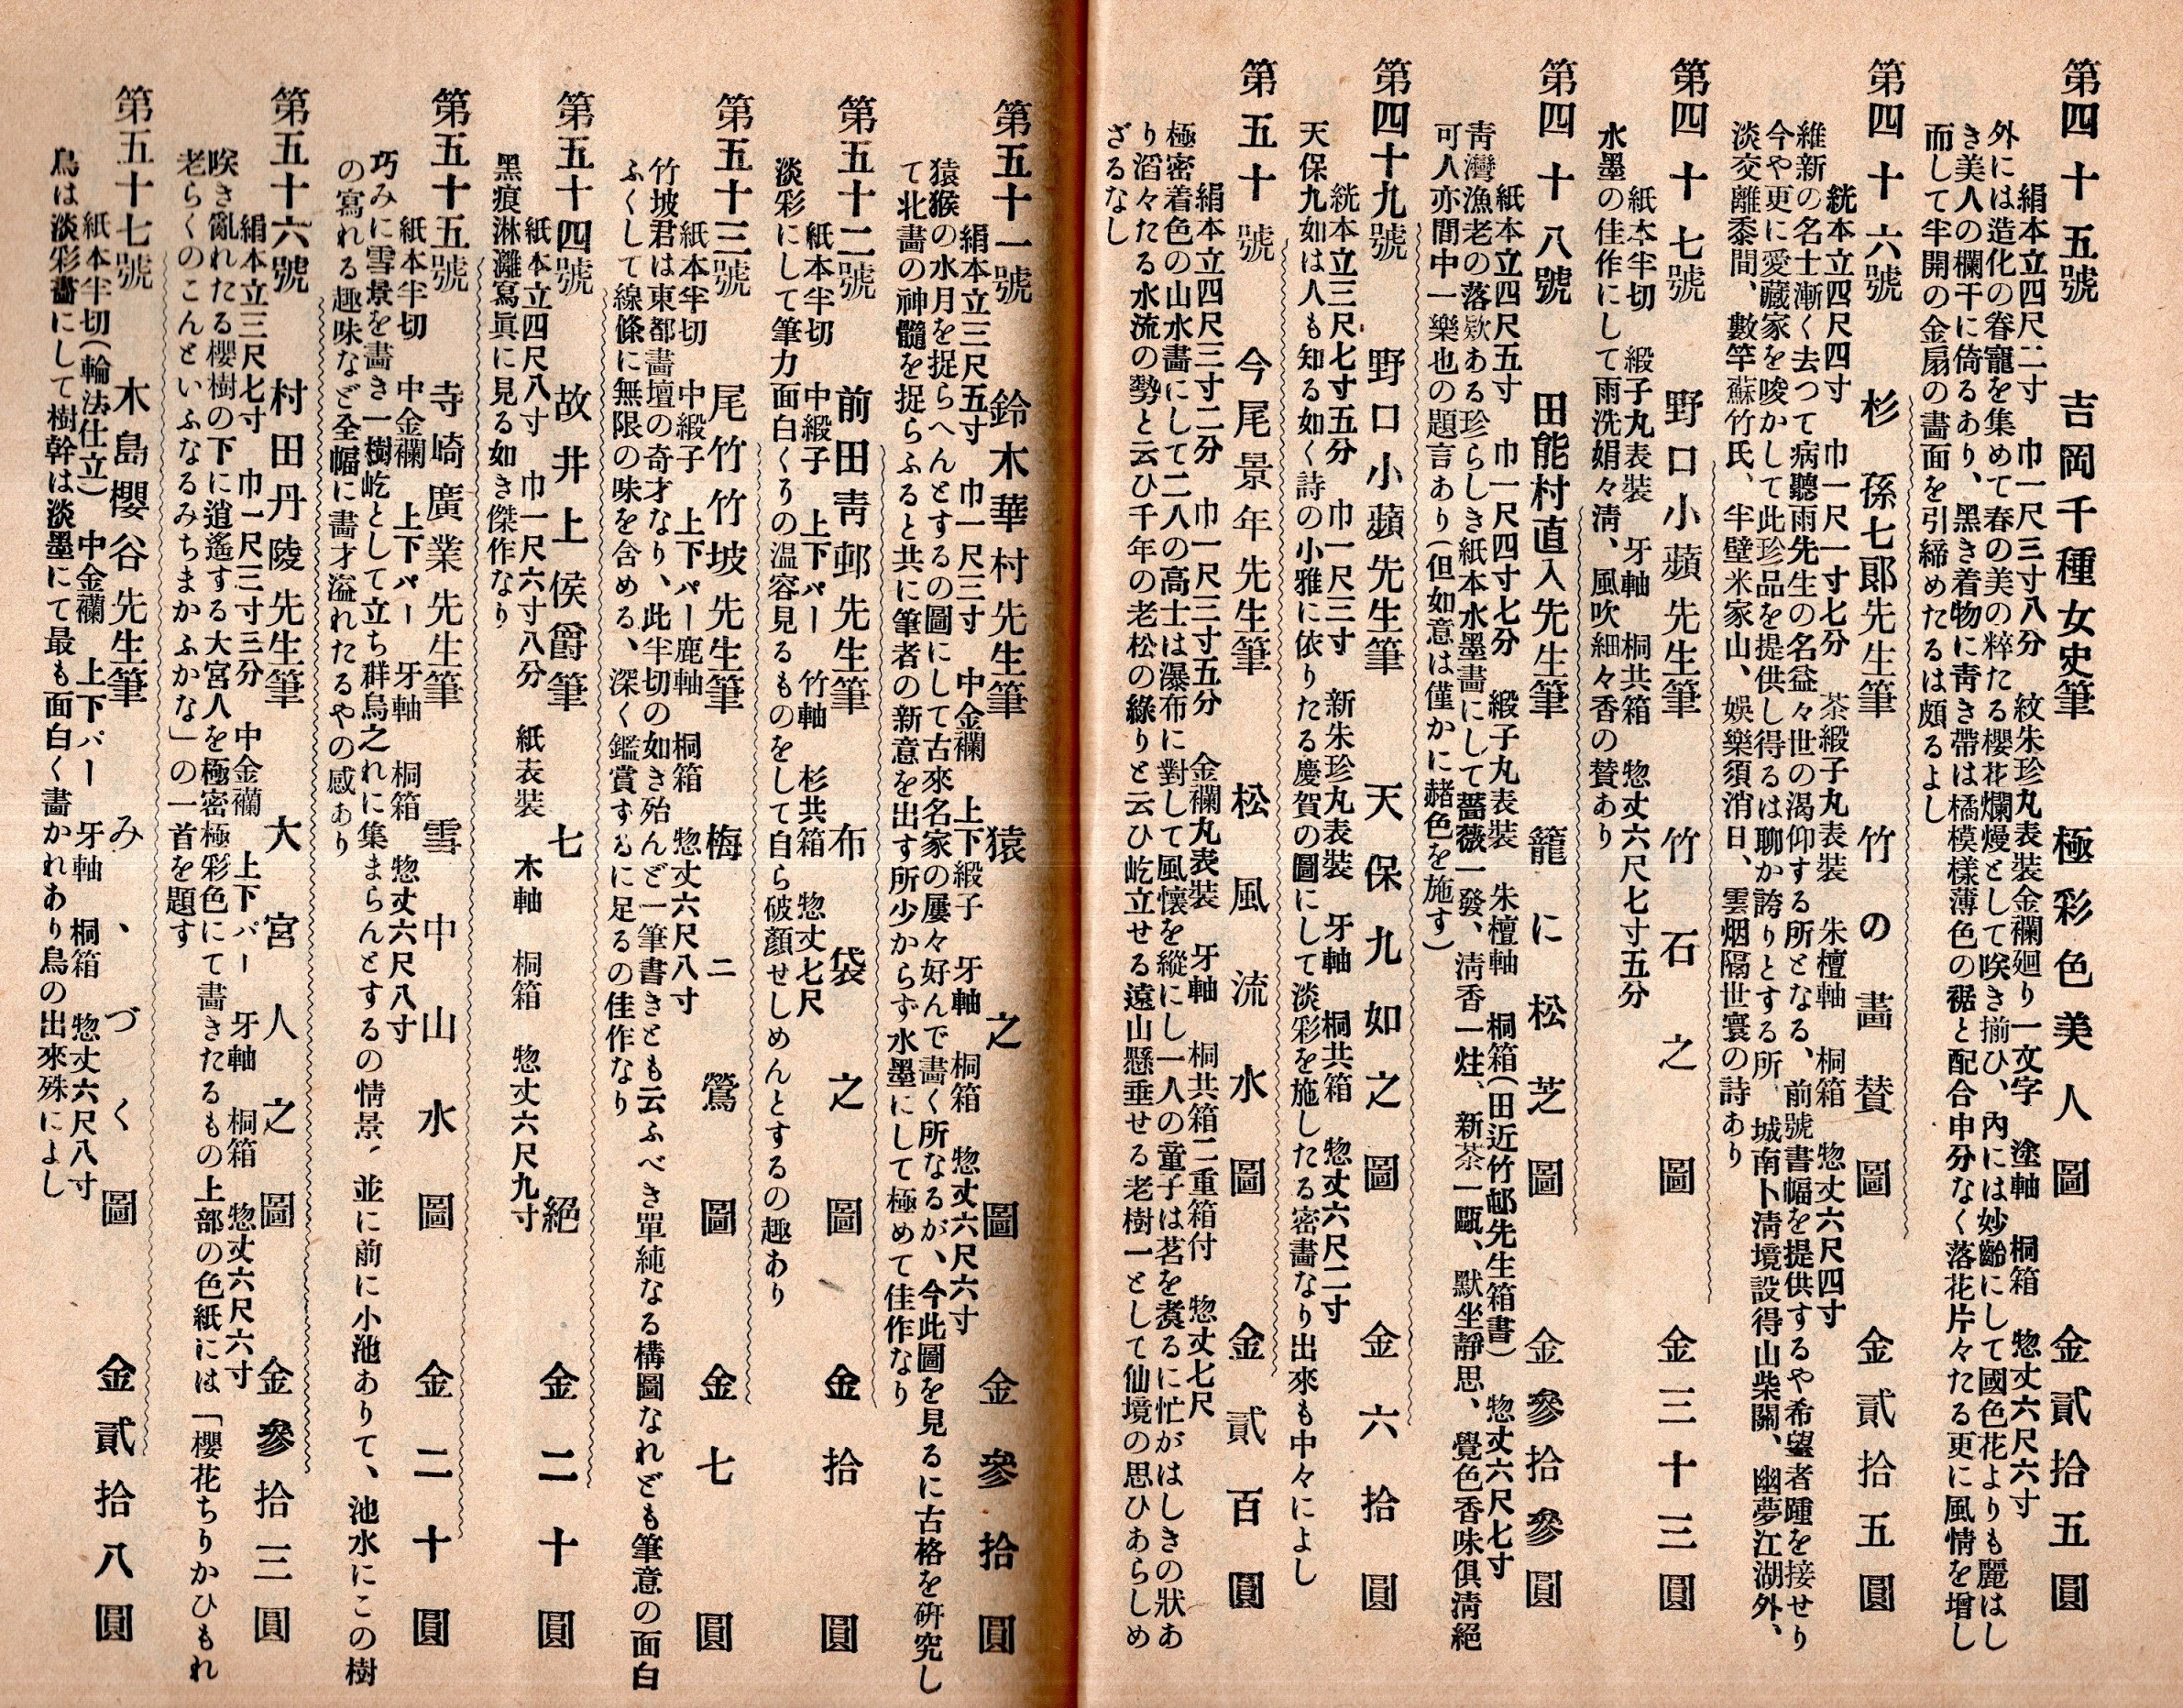 第四十五號　吉岡千種女史筆　極彩色美人圖　金貳拾五圓
絹本立四尺二寸　巾一尺三寸八分　紋朱珍丸表裝金襴廻り一文字　塗軸　桐箱　惣丈六尺六寸
外には造化の眷寵を集めて春の美の粹たる櫻花爛熳として咲き揃ひ、內には妙齡にして國色花よりも麗はし
き美人の欄干に倚るあり、黑き着物に靑き帶は橘模樣薄色の裾と配合申分なく落花片々たる更に風情を增し
而して半開の金扇の畵面を引締めたるは頗るよし
第四十六號　杉孫七郎先生筆　竹の畵賛圖　金貳拾五圓
絖本立四尺四寸　巾一尺一寸七分　茶緞子丸表裝　朱檀軸　桐箱　惣丈六尺四寸
維新の名士漸く去つて病聽雨先生の名益々世の渴仰する所となる、前號書幅を提供するや希望者踵を接せり
今や更に愛藏家を唆かして此珍品を提供し得るは聊か誇りとする所　城南卜淸境設得山柴關、幽夢江湖外、
淡交離黍間、數竿蘇竹氏、半壁米家山、娯樂須消日、雲烟隔世寰の詩あり
第四十七號　野口小蘋先生筆　竹石之圖　金三十三圓
紙本半切　緞子丸表裝　牙軸　桐共箱　惣丈六尺七寸五分
水墨の佳作にして雨洗娟々淸、風吹細々香の賛あり
第四十八號　田能村直入先生筆　籠に松芝圖　金參拾參圓
紙本立四尺五寸　巾一尺四寸七分　緞子丸表裝　朱檀軸　桐箱(田近竹邨先生箱書)　惣丈六尺七寸
靑灣漁老の落欵ある珍らしき紙本水墨畵にして薔薇一發、淸香一炷、新茶一甌、默坐靜思、覺色香味俱淸絕
可人亦間中一樂也の題言あり(但如意は僅かに赭色を施す)
第四十九號　野口小蘋先生筆　天保九如之圖　金六拾圓
絖本立三尺七寸五分　巾一尺三寸　新朱珍丸表裝　牙軸　桐共箱　惣丈六尺二寸
天保九如は人も知る如く詩の小雅に依りたる慶賀の圖にして淡彩を施したる密畵なり出來も中々によし
第五十號　今尾景年先生筆　松風流水圖　金貳百圓
絹本立四尺三寸二分　巾一尺三寸五分　金襴丸表裝　牙軸　桐共箱二重箱付　惣丈七尺
極密着色の山水畵にして二八の高士は瀑布に對して風懷を縱にし一人の童子は茗を煑るに忙がはしきの狀あ
り滔々たる水流の勢と云ひ千年の老松の綠りと云ひ屹立せる遠山懸垂せる老樹一として仙境の思ひあらしめ
ざるなし
第五十一號　鈴木華村先生筆　猿之圖　金參拾圓
絹本立三尺五寸　巾一尺三寸　中金襴　上下緞子　牙軸　桐箱　惣丈六尺六寸
猿猴の水月を捉らへんとするの圖にして古來名家の屢々好んで畵く所なるが、今此圖を見るに古格を硏究し
て北畵の神髓を捉らふると共に筆者の新意を出す所少からず水墨にして極めて佳作なり
第五十二號　前田靑邨先生筆　布袋之圖　金拾圓
紙本半切　中緞子　上下パー　竹軸　杉共箱　惣丈七尺
淡彩にして筆力面白くりの温容見るものをして自ら破顏せしめんとするの趣あり
第五十三號　尾竹竹坡先生筆　梅ニ鶯圖　金七圓
紙本半切　中緞子　上下パー鹿軸　桐箱　惣丈六尺八寸
竹坡君は東都畵壇の奇才なり、此半切の如き殆んど一筆書きとも云ふべき單純なる構圖なれども筆意の面白
ふくして線條に無限の味を含める、深く鑑賞するに足るの佳作なり
第五十四號　故井上侯爵筆　七絕　金二十圓
紙本立四尺八寸　巾一尺六寸八分　紙表裝　木軸　桐箱　惣丈六尺九寸
黑痕淋灕寫眞に見る如き傑作なり
第五十五號　寺崎廣業先生筆　雪中山水圖　金二十圓
紙本半切　中金襴　上下パー　牙軸　桐箱　惣丈六尺八寸
巧みに雪景を畵き一樹屹として立ち群鳥之れに集まらんとするの情景、並に前に小池ありて、池水にこの樹
の寫れる趣味など全幅に畵才溢れたるやの感あり
第五十六號　村田丹陵先生筆　大宮人之圖　金參拾三圓
絹本立三尺七寸　巾一尺三寸三分　中金襴　上下パー　牙軸　桐箱　惣丈六尺六寸
咲き亂れたる櫻樹の下に逍遙する大宮人を極密極彩色にて畵きたるもの上部の色紙には「櫻花ちりかひもれ
老らくのこんといふなるみちまかふかな」の一首を題す
第五十七號　木島櫻谷先生筆　みゝづく圖　金貳拾八圓
紙本半切(輪法仕立)　中金襴　上下パー　牙軸　桐箱　惣丈六尺八寸
鳥は淡彩畵にして樹幹は淡墨にて最も面白く畵かれあり鳥の出來殊によし